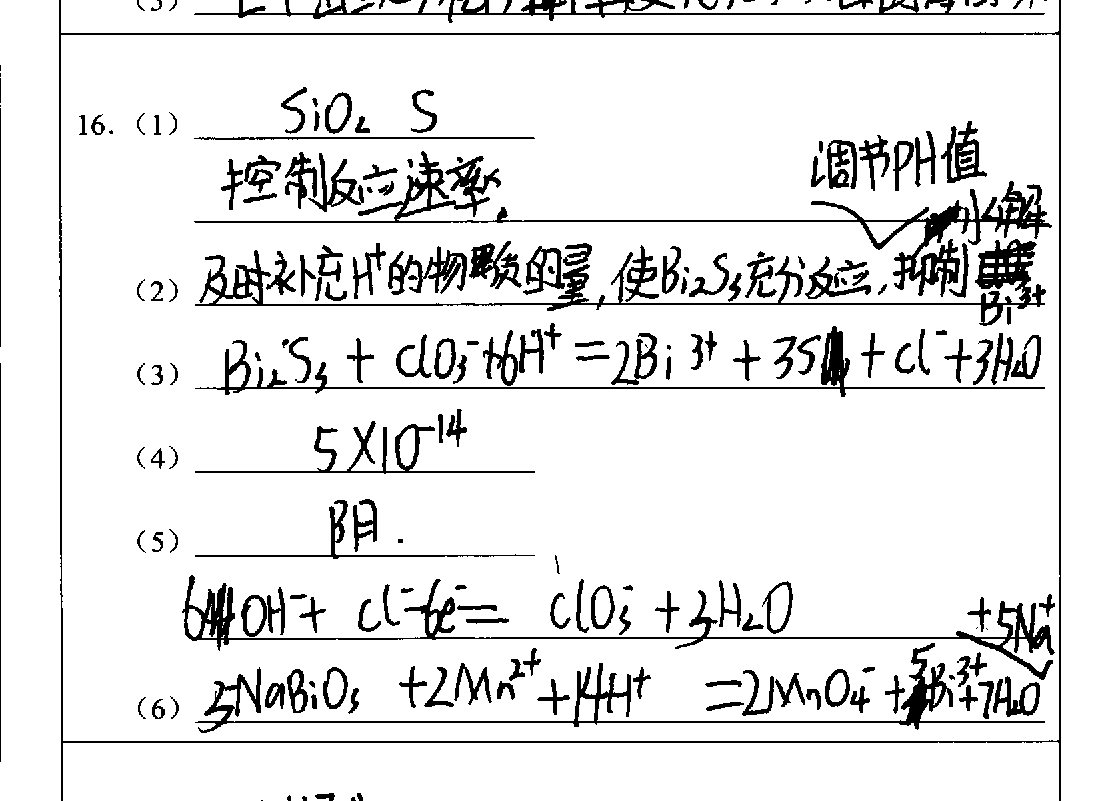 16. (1) SiO₂ S
控制反应速率.
(2) 及时补充H⁺的物质的量,使Bi₂S₃充分反应,调节PH值 抑制Bi³⁺水解
(3) Bi₂S₃ + ClO₃⁻+6H⁺ = 2Bi³⁺ + 3S + Cl⁻ +3H₂O
(4) 5×10⁻¹⁴
(5) 阴.
6OH⁻+ Cl⁻-6e⁻= ClO₃⁻ +3H₂O
(6) 5NaBiO₃ +2Mn²⁺+14H⁺ =2MnO₄⁻+5Bi³⁺+7H₂O +5Na⁺